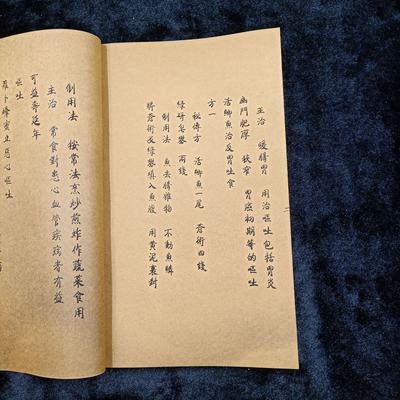 主治 暖膳胃 用治嘔吐包括胃炎
幽門肥厚 狹窄 胃癌初期等的嘔吐
活鯽魚治反胃吐食
方一
秘傳方 活鯽魚一尾 蒼術四錢
綠礬 兩錢
制用法 魚去腸雜物 不動魚鱗
將蒼術及綠礬填入魚腹 用黃泥裹封
制用法 按常法烹炒煎炸作蔬菜食用
主治 常食對患心血管疾病者有益
可益壽延年
嘔吐
蘿卜蜂蜜立
惡心嘔吐